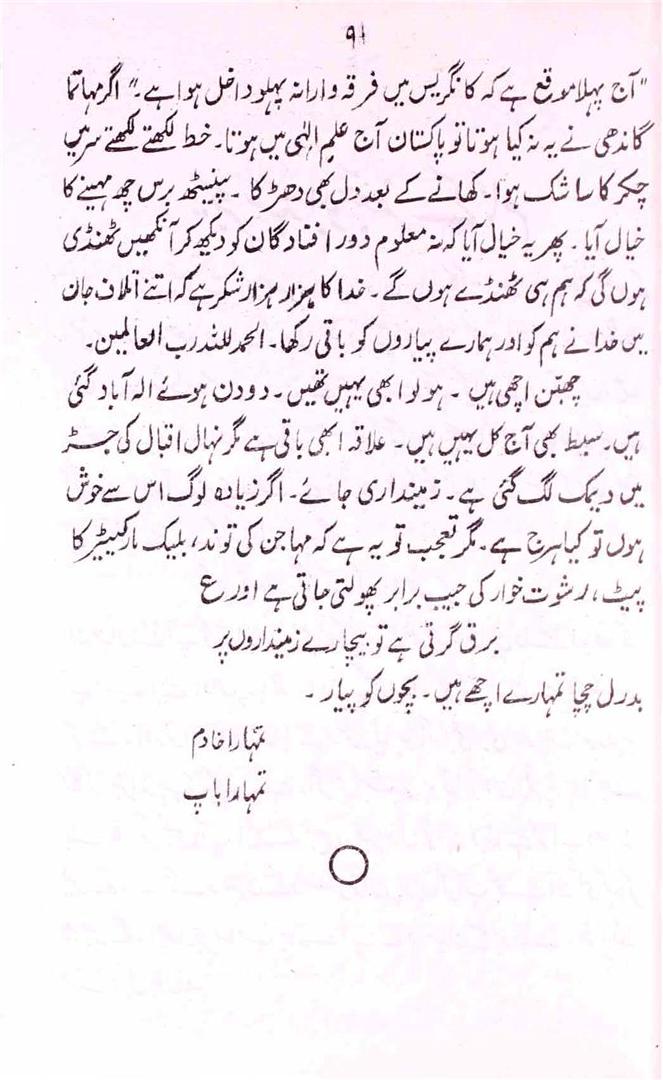 ۹۱
"آج پہلا موقع ہے کہ کانگریس میں فرقہ وارانہ پہلو داخل ہوا ہے۔" اگر مہاتما
گاندھی نے یہ نہ کیا ہوتا تو پاکستان آج علمِ الٰہی میں ہوتا۔ خط لکھتے لکھتے سر میں
چکر کا سا شک ہوا۔ کھانے کے بعد دل بھی دھڑکا۔ پینسٹھ برس چھ مہینے کا
خیال آیا۔ پھر یہ خیال آیا کہ نہ معلوم دور افتادگان کو دیکھ کر آنکھیں ٹھنڈی
ہوں گی کہ ہم ہی ٹھنڈے ہوں گے۔ خدا کا ہزار ہزار شکر ہے کہ اتنے اتلاف جان
میں خدا نے ہم کو اور ہمارے پیاروں کو باقی رکھا۔ الحمد للہ رب العالمین۔
چھبّن اچھی ہیں۔ ہولو ابھی یہیں تھیں۔ دو دن ہوئے الہ آباد گئی
ہیں۔ سبط بھی آج کل یہیں ہیں۔ علاقہ ابھی باقی ہے مگر نہال اقبال کی جڑ
میں دیمک لگ گئی ہے۔ زمینداری جائے۔ اگر زیادہ لوگ اس سے خوش
ہوں تو کیا ہرج ہے۔ مگر تعجب تو یہ ہے کہ مہاجن کی توند، بلیک مارکیٹیر کا
پیٹ، رشوت خوار کی جیب برابر پھولتی جاتی ہے اور ع
برق گرتی ہے تو بیچارے زمینداروں پر
بدرل چچا تمہارے اچھے ہیں۔ بچوں کو پیار۔
تمہارا خادم
تمہارا باپ